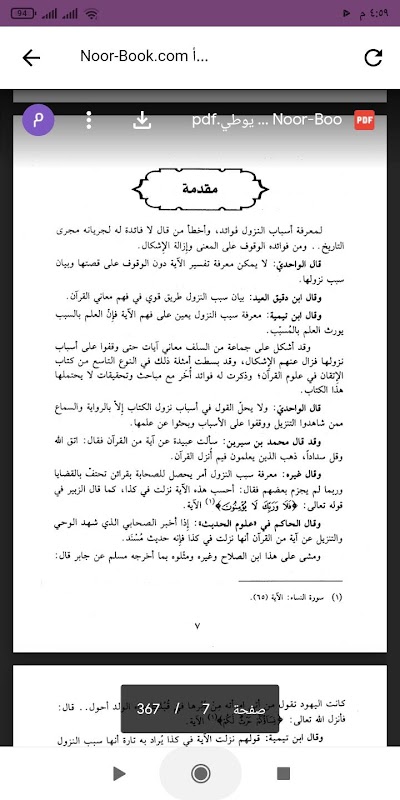 ٤:٥٩ م
94
Noor-Book.com أ...
Noor-Boo ... يوطي.pdf
PDF
م
مقدمة
لمعرفة أسباب النزول فوائد، وأخطأ من قال لا فائدة له لجريانه مجرى
التاريخ.. ومن فوائده الوقوف على المعنى وإزالة الإشكال.
قال الواحديّ: لا يمكن معرفة تفسير الآية دون الوقوف على قصتها وبيان
سبب نزولها.
وقال ابن دقيق العيد: بيان سبب النزول طريق قوي في فهم معاني القرآن.
وقال ابن تيمية: معرفة سبب النزول يعين على فهم الآية فإنّ العلم بالسبب
يورث العلم بالمُسبَّب.
وقد أشكل على جماعة من السلف معاني آيات حتى وقفوا على أسباب
نزولها فزال عنهم الإشكال، وقد بسطت أمثلة ذلك في النوع التاسع من كتاب
الإتقان في علوم القرآن؛ وذكرت له فوائد أُخَر مع مباحث وتحقيقات لا يحتملها
هذا الكتاب.
قال الواحديّ: ولا يحلّ القول في أسباب نزول الكتاب إلاّ بالرواية والسماع
ممن شاهدوا التنزيل ووقفوا على الأسباب وبحثوا عن علمها.
وقد قال محمد بن سيرين: سألت عبيدة عن آية من القرآن فقال: اتق الله
وقل سداداً، ذهب الذين يعلمون فيم أُنزل القرآن.
وقال غيره: معرفة سبب النزول أمر يحصل للصحابة بقرائن تحتفّ بالقضايا
وربما لم يجزم بعضهم فقال: أحسب هذه الآية نزلت في كذا، كما قال الزبير في
قوله تعالى: ﴿فَلَا وَرَبِّكَ لَا يُؤْمِنُونَ﴾(١) الآية.
وقال الحاكم في «علوم الحديث»: إذا أخبر الصحابي الذي شهد الوحي
والتنزيل عن آية من القرآن أنها نزلت في كذا فإنه حديث مُسْنَد.
ومشى على هذا ابن الصلاح وغيره ومثّلوه بما أخرجه مسلم عن جابر قال:
(١) سورة النساء: الآية (٦٥).
٧
كانت اليهود تقول من أتى امرأته من دبرها في قُبُلها جاء الولد أحول.. قال:
فأنزل الله تعالى: ﴿نِسَاؤُكُمْ حَرْثٌ لَّكُمْ﴾(١) الآية.
صفحة 7 / 367
وقال ابن تيمية: قولهم نزلت الآية في كذا يُراد به تارة أنها سبب النزول